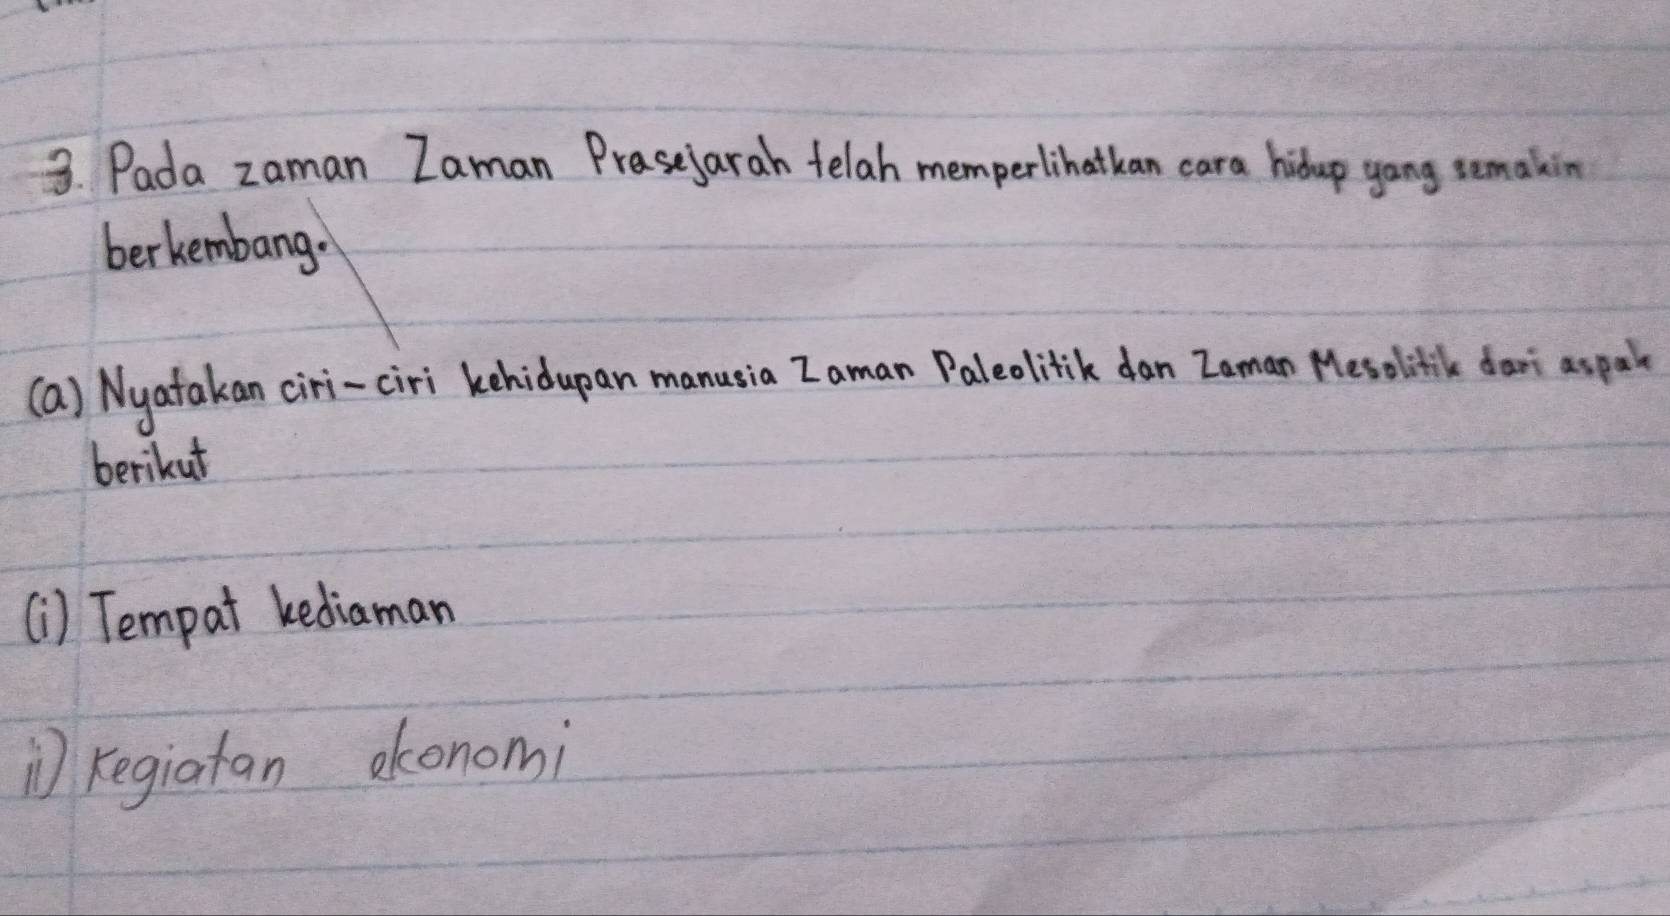 3. Pada zaman Zaman Prasejarah telah memperlihatkan cara hidup yang semakin
berkembang.
(a) Nyatakan ciri-ciri kehidupan manusia Zaman Paleolitik dan Zaman Mesolitik dari aspek
berikut
(i) Tempat kediaman
ii) Kegiatan ekonomi